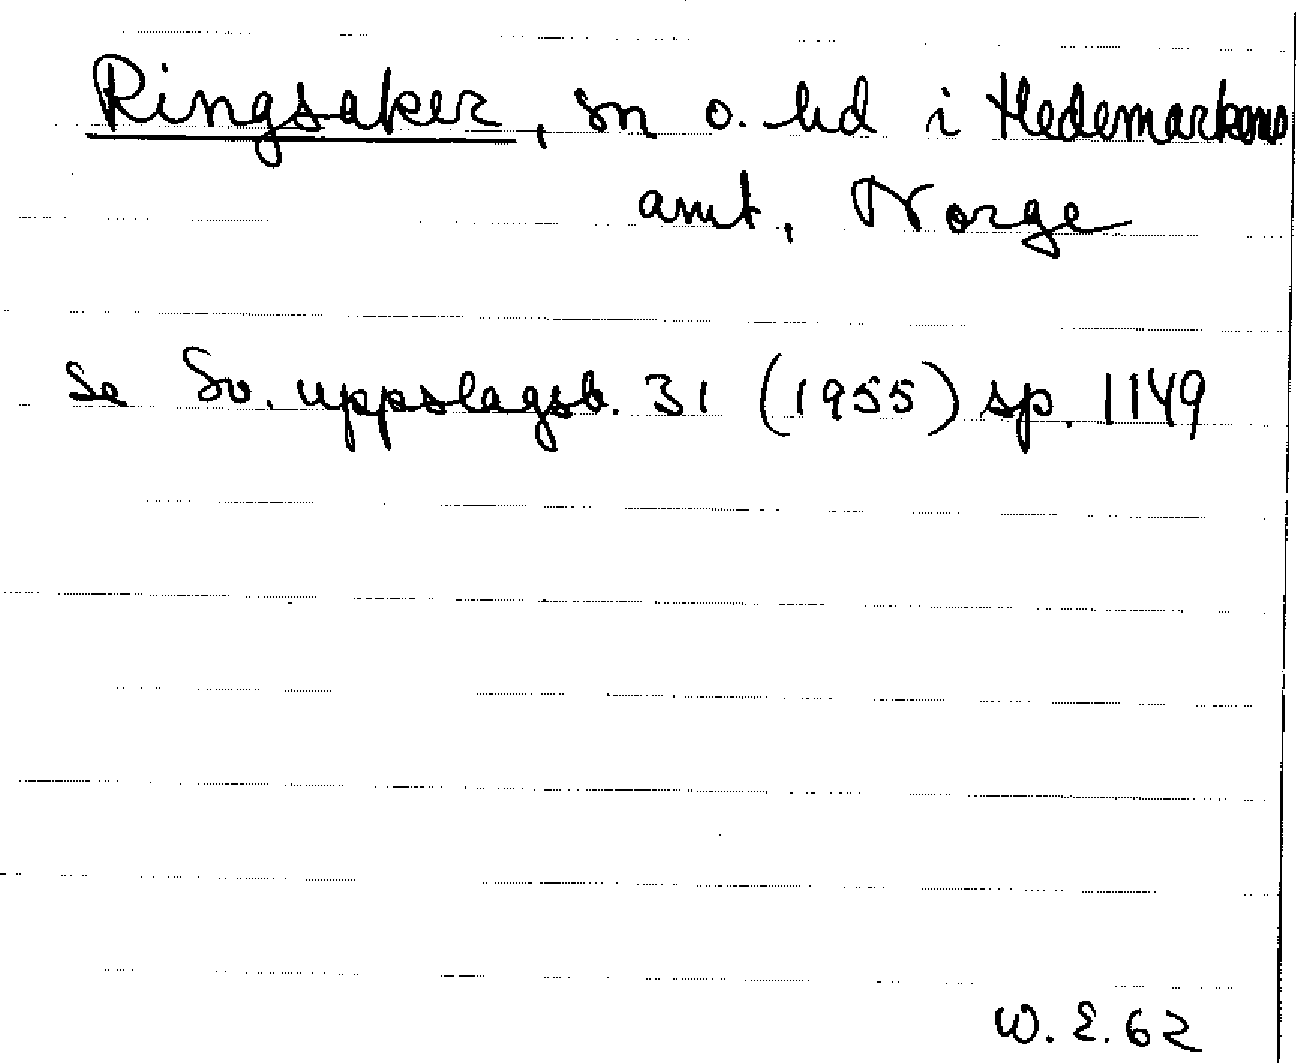 Ringsaker, sn o. hd i Hedemarkens
amt, Norge
Se Sv. uppslagsb. 31 (1955) sp. 1149
W. E. 62